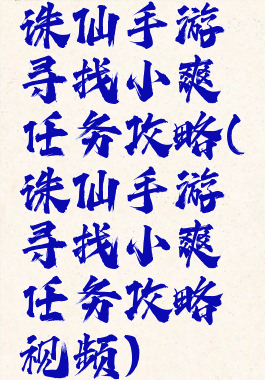 诛仙手游
寻找小爽
任务攻略(
诛仙手游
寻找小爽
任务攻略
视频)